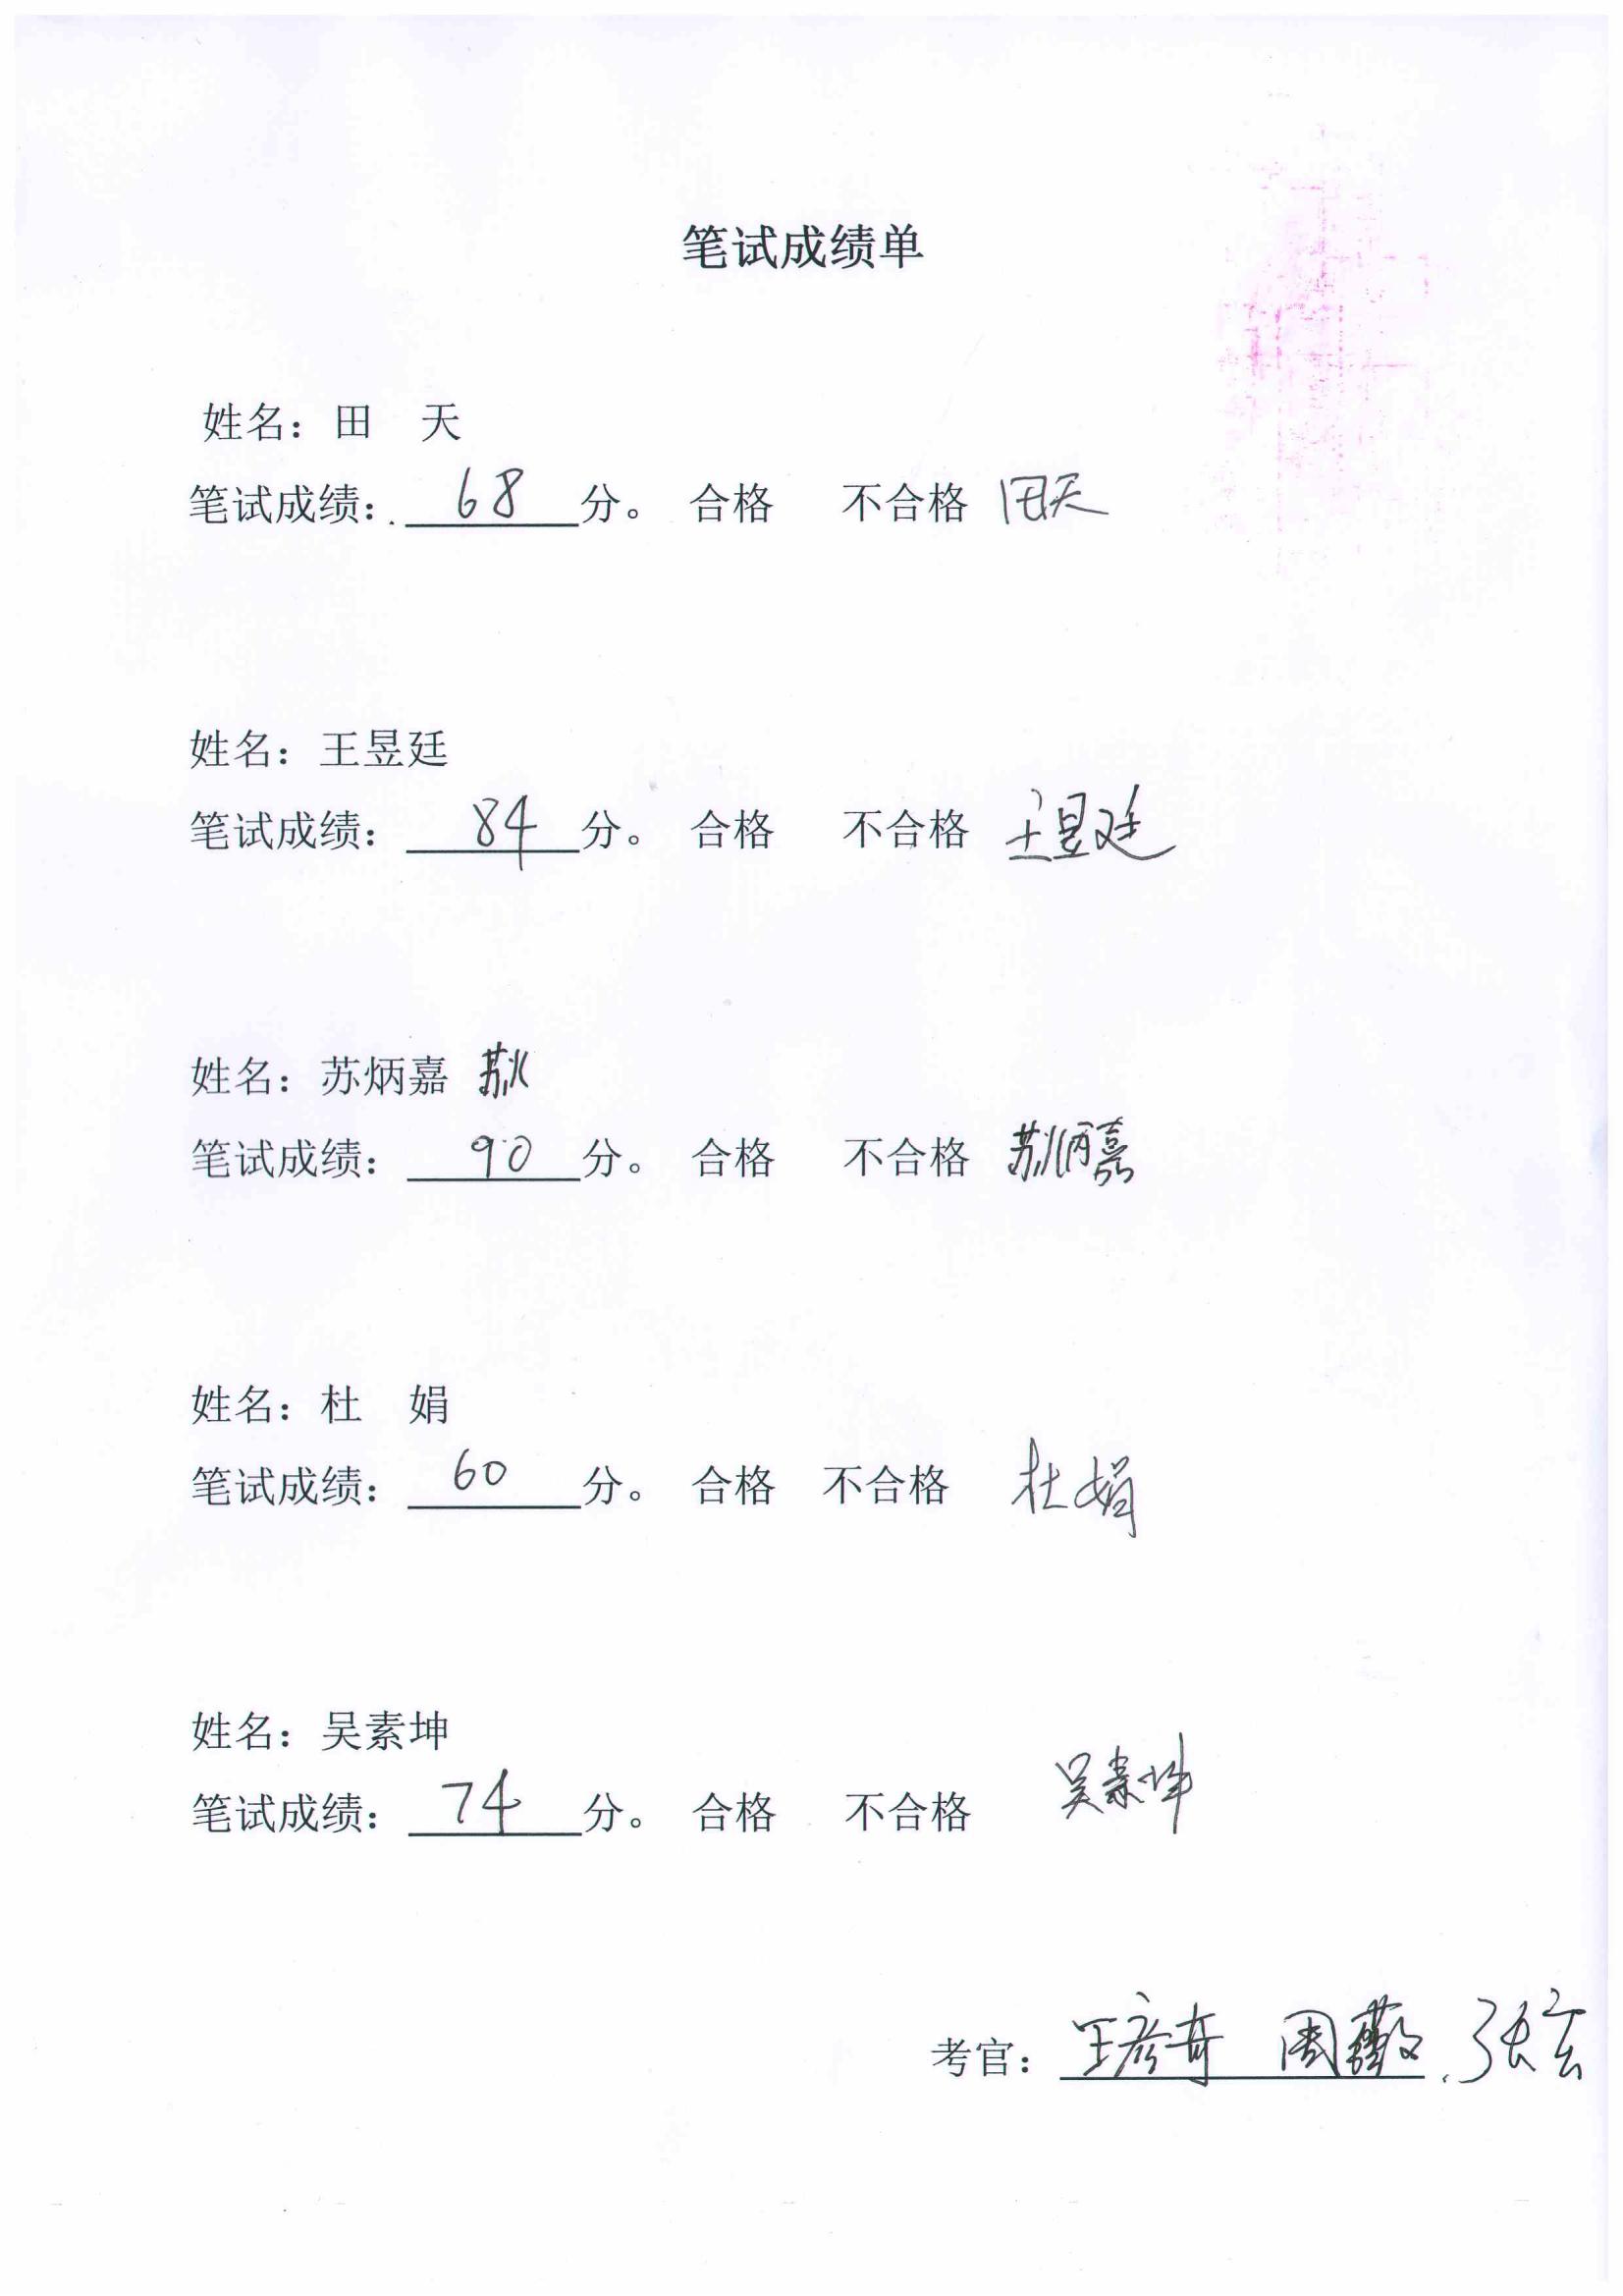 笔试成绩单
姓名：田 天
笔试成绩： 68 分。 合格 不合格 田天
姓名：王昱廷
笔试成绩： 84 分。 合格 不合格 王昱廷
姓名：苏炳嘉 苏火
笔试成绩： 90 分。 合格 不合格 苏炳嘉
姓名：杜 娟
笔试成绩： 60 分。 合格 不合格 杜娟
姓名：吴素坤
笔试成绩： 74 分。 合格 不合格 吴素坤
考官： 王彦奇 周 张宏